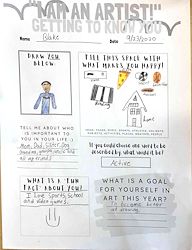 "I AM AN ARTIST!"
GETTING TO KNOW YOU
Name Blake Date 9/23/2020
DRAW YOU
BELOW
FILL THIS SPACE WITH
WHAT MAKES YOU HAPPY!
TELL ME ABOUT WHO
IS IMPORTANT TO
YOU IN YOUR LIFE :)
Mom, Dad, Sister, Dog
If you could choose one word to be
described by, what would it be?
Active
WHAT IS A "FUN
FACT" ABOUT YOU?
I Love Sports School
and video games.
WHAT IS A GOAL
FOR YOURSELF IN
ART THIS YEAR?
To become better
at drawing.